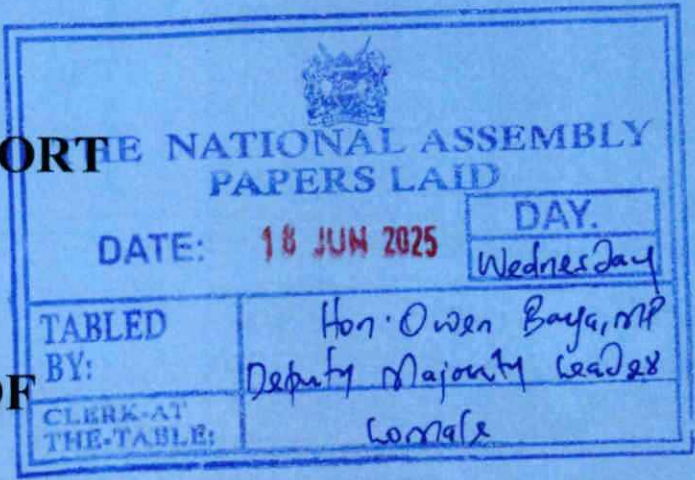 ORT
THE NATIONAL ASSEMBLY
PAPERS LAID
DATE: 18 JUN 2025
DAY.
Wednesday
TABLED BY:
Hon. Owen Baya, MP
Deputy Majority Leader
OF
CLERK-AT THE-TABLE: